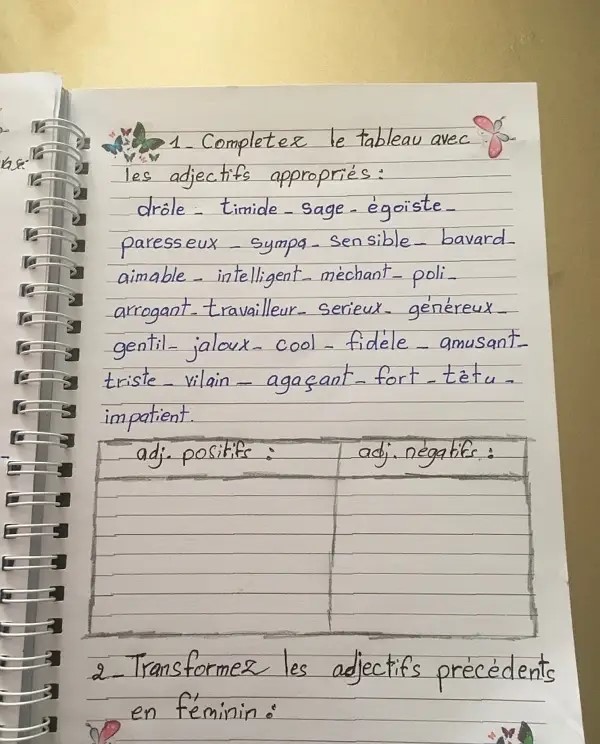 1_ Completez le tableau avec
les adjectifs appropriés :
drôle _ timide _ sage _ égoïste _
paresseux _ sympa _ sensible _ bavard _
aimable _ intelligent _ mèchant _ poli _
arrogant _ travailleur _ serieux _ généreux _
gentil _ jaloux _ cool _ fidèle _ amusant _
triste _ vilain _ agaçant _ fort _ tètu _
impatient.
adj. positifs : adj. négatifs :
2_ Transformez les adjectifs précédents
en féminin :